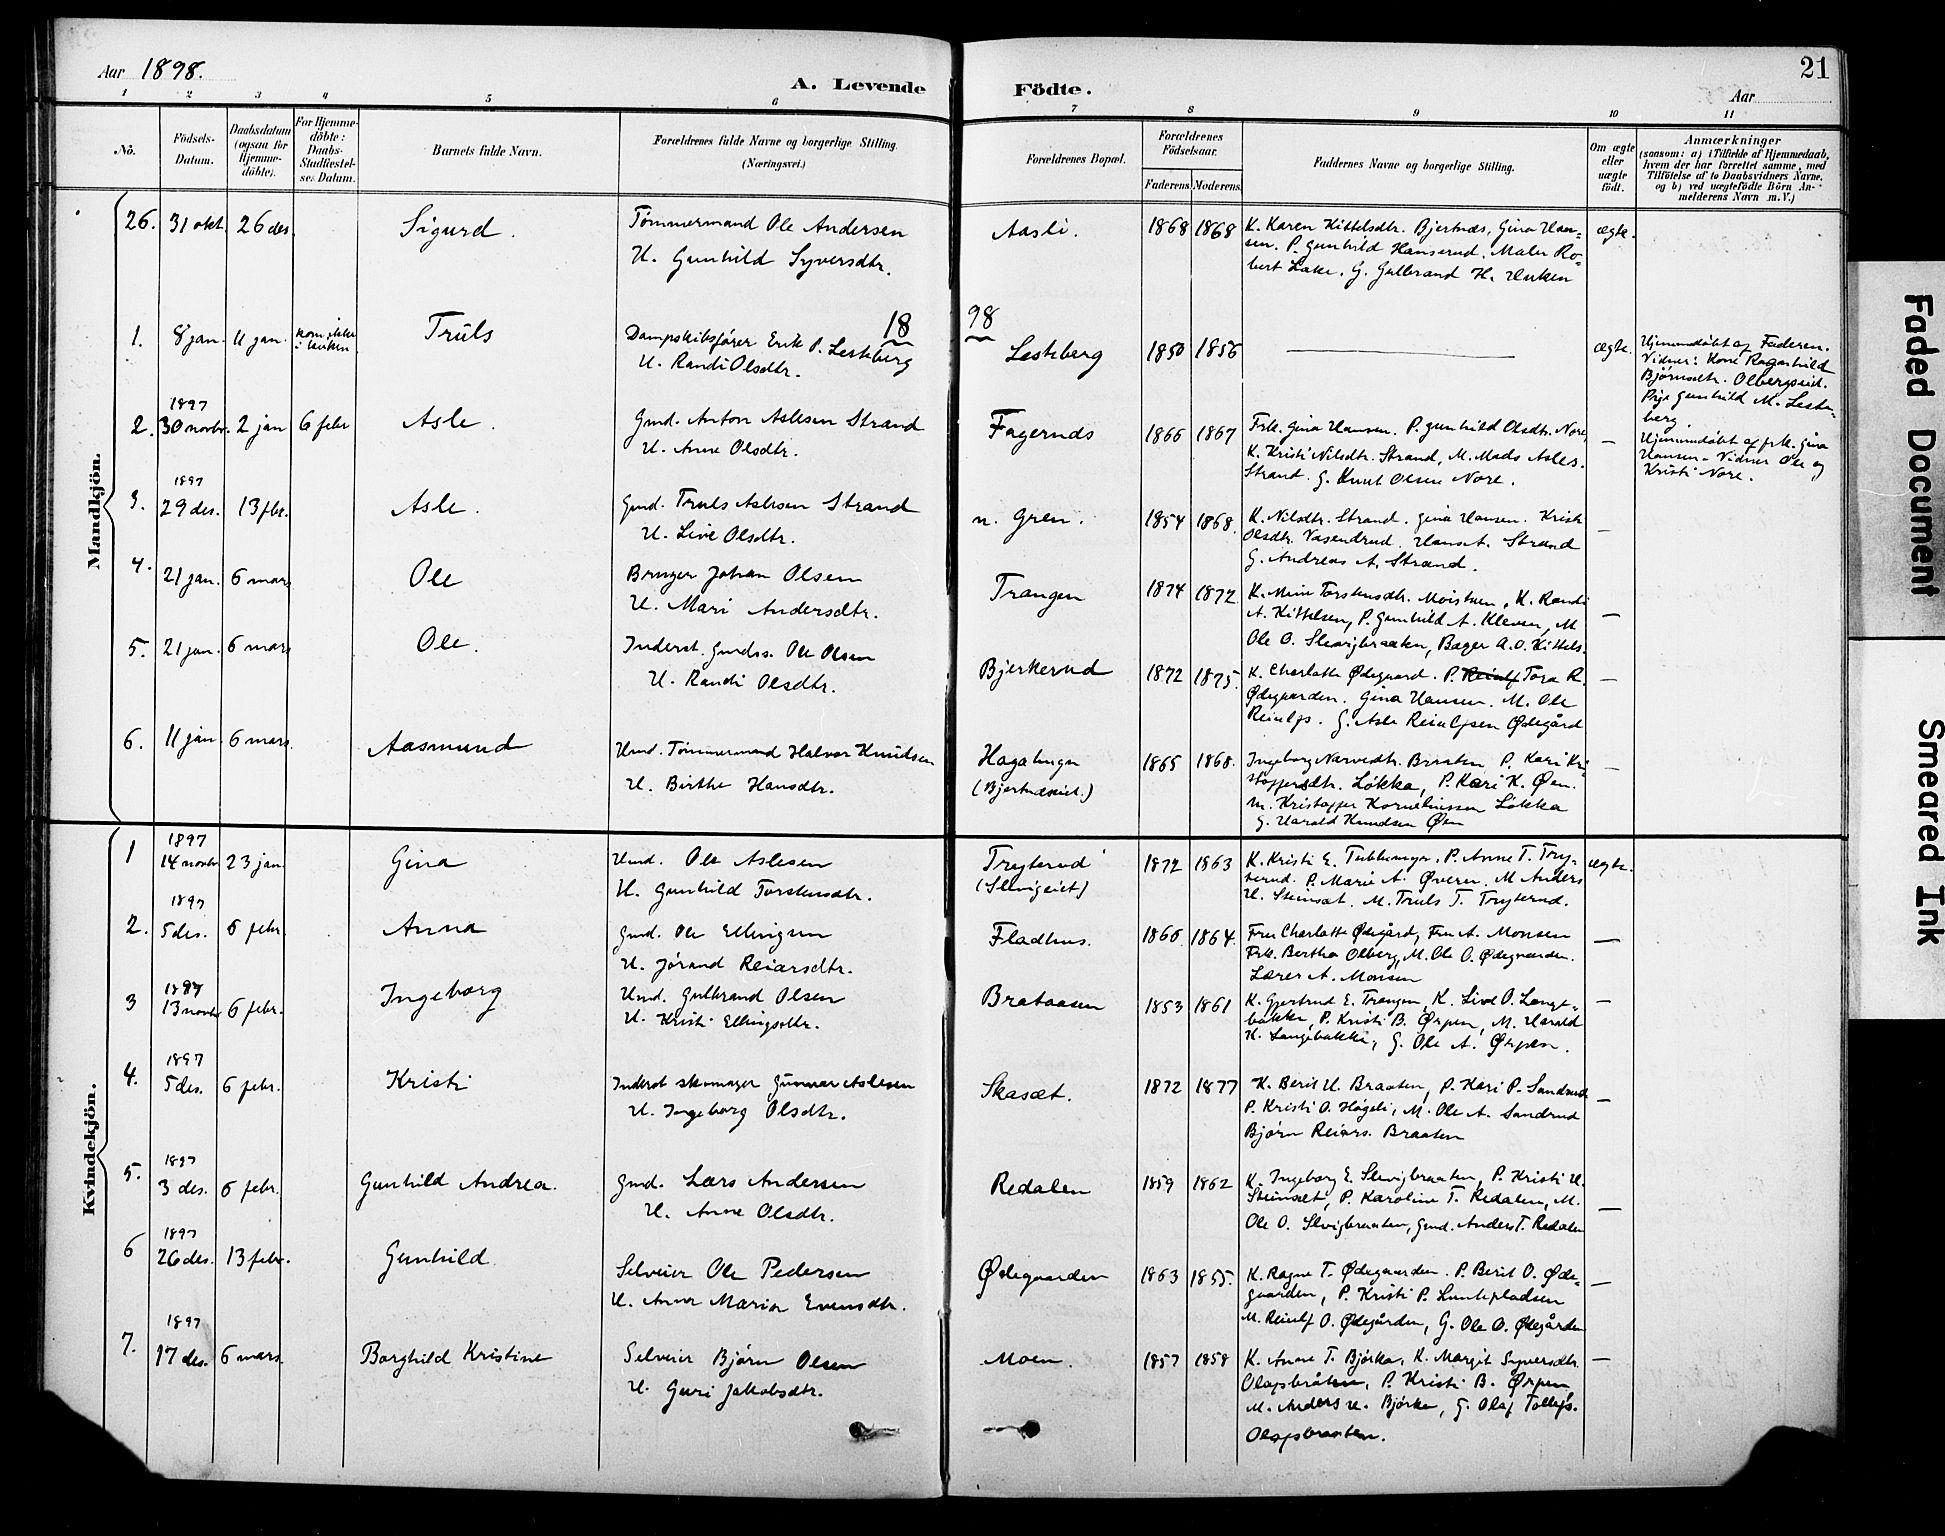 Aar 1898.
A. Levende Födte.
21
Aar
1 2 3 4 5 6 7 8 9 10 11
Nô.
Födsels-Datum.
Daabsdatum (ogsaa for Hjemme-döbte).
For Hjemme-döbte: Daabs-Stadfæstel-ses Datum.
Barnets fulde Navn.
Forældrenes fulde Navne og borgerlige Stilling. (Næringsvei.)
Forældrenes Bopæl.
Forældrenes Födselsaar.
Faderens. Moderens.
Faddernes Navne og borgerlige Stilling.
Om ægte eller uægte födt.
Anmærkninger
(saasom: a) i Tilfælde af Hjemmedaab, hvem der har forrettet samme, med Tilföielse af to Daabsvidners Navne, og b) ved uægtefödte Börn An-melderens Navn m. V.)
Mandkjön.
26. 31 okt. 26 des. Sigurd. Tömmermand Ole Andersen Aasli. 1868 1868 K. Karen Kittelsdtr. Bjertnæs, Gina Han-
ægte.
H. Gunhild Syversdtr. sen. P. Gunhild Hanserud. Maler Ro-
bert Lake. G. Gulbrand H.
18 98
1. 8 jan. 11 jan. kom ikke i kirken. Truls Dampskibsförer Erik P. Lesteberg Lesteberg 1850 1856 ægte. Hjemmedöbt af Faderen.
H. Randi Olsdtr. Vidner: Kone Ragnhild
Björnsdtr. Olbergseid.
Pige Gunhild M. Leste-
berg.
1897
2. 30 novbr. 2 jan 6 febr Asle. Gmd. Anton Aslesen Strand Fagernds 1866 1867 Frk. Gina Hansen. P. Gunhild Olsdtr. Nore, —
Hjemmedöbt af frk. Gina
H. Anne Olsdtr. K. Kristi Nilsdtr. Strand, M. Mads Asles. Hansen - Vidner Ole og
Strand. G. Knut Olsen Nore. Kristi Nore.
1897
3. 29 des. 13 fbr. Asle. Gmd. Truls Aslesen Strand n. Gren. 1854 1868 K. Nilsdtr. Strand. Gina Hansen. Kristi —
H. Live Olsdtr. Olsdtr. Vasendrud. Hans A. Strand
G. Andreas A. Strand.
4. 21 jan. 6 mars Ole Bruger Johan Olsen Trangen 1874 1872 K. Mina Torstensdtr. Moistuen, K. Randi —
H. Mari Andersdtr. A. Kittelsen, P. Gunhild A. Kleven, M
Ole O. Slevigbraaten, Bager A.O. Kittels.
5. 21 jan. 6 mars Ole. Inderst. Gmdss. Ole Olsen Bjerkerud 1872 1875. K. Charlotte Ødegaard. P. Reiulf Tora R. —
H. Randi Olsdtr. Ødegaarden. Gina Hansen. M. Ole
Reiulfs. G. Asle Reiulfsen Ødegård
6. 11 jan 6 mars Aasmund Hmd. Tömmermand Halvor Knudsen Hagahugen 1865 1868. Ingeborg Narvedtr. Braaten P. Kari Kri- —
H. Birthe Hansdtr. (Bjertnæseiet.) stoffersdtr. Løkka, P. Kari K. Øen.
M. Kristoffer Korneliussen Løkka
G. Harald Knudsen Øen
Kvindekjön.
1897
1 14 novbr 23 jan Gina Hmd. Ole Aslesen Tryterud 1872 1863 K. Kristi E. Tubbehaugen. P. Anne T. Try- ægte.
H. Gunhild Torstensdtr. (Slevigeiet) terud. P. Marie A. Øveren. M Anders
H. Steinsæt. M. Truls T. Tryterud.
1897
2. 5 des. 6 febr. Anna Gmd. Ole Ellingsen Fladhus. 1866 1864. Fru Charlotte Ødegård, Fru A. Monsen —
H. Jörand Reiarsdtr. Frk. Bertha Olberg, M. Ole O. Ødegaarden.
Lærer A. Monsen
1897
3 13 novbr 6 febr. Ingeborg Hmd. Gulbrand Olsen Brataasen 1853 1861 K. Gjertrud E. Trangen, K. Live O. Lange- —
H. Kristi Ellingsdtr. bakke, P. Kristi B. Ørpen, M. Harald
H. Langebakke, G. Ole A. Ørpen.
1897
4. 5 des. 6 febr. Kristi Inderst skomager Gunnar Aslesen Skasæt. 1872 1877 K. Berit H. Braaten, P. Kari P. Sandrud —
H. Ingeborg Olsdtr. P. Kristi O. Høgeli, M. Ole A. Sandrud
Björn Reiars. Braaten
1897
5. 3 des. 6 febr. Gunhild Andrea. Gmd. Lars Andersen Redalen 1859 1862 K. Ingeborg E. Slevigbraaten, P. Kristi H. —
H. Anne Olsdtr. Steinsæt, P. Karoline T. Redalen, M.
Ole O. Slevigbraaten, Gmd. Anders T. Redalen
1897
6 26 des. 13 febr. Gunhild. Selveier Ole Pedersen Ødegaarden 1863 1855. K. Ragne T. Ødegaarden. P. Berit O. Øde- —
H. Anne Maria Evensdtr. gaarden, P. Kristi P. Luntepladsen
M. Reiulf O. Ødegården, G. Ole O. Ødegården
1897
7. 17 des. 6 mars. Borghild Kristine Selveier Björn Olsen Moen. 1857 1858 K. Anne T. Björke, K. Margit Syversdtr. —
H. Guri Jakobsdtr. Olafsbråten, P. Kristi B. Ørpen
M. Anders H. Björke, G. Olaf Tollefs.
Olafsbraaten.
Faded Document
Smeared Ink